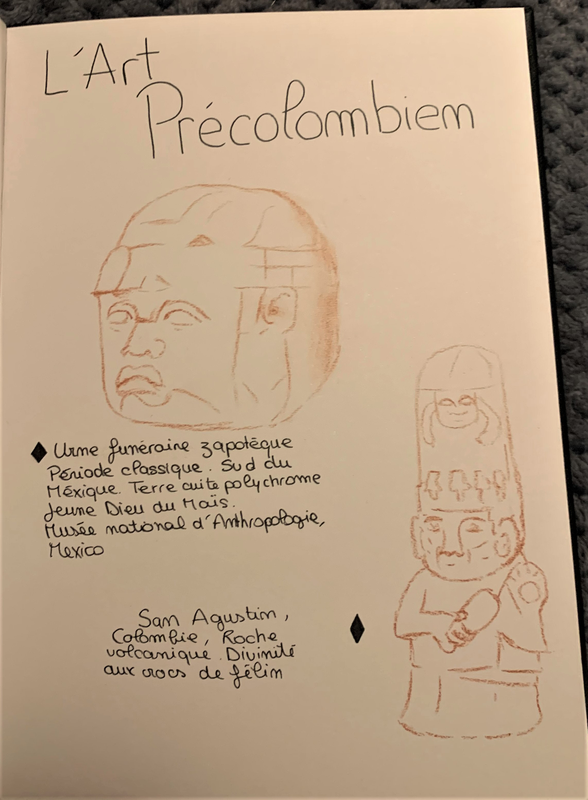 L'Art
Précolombien
Urne funéraire zapotèque
Période classique. Sud du
Méxique. Terre cuite polychrome
Jeune Dieu du Maïs.
Musée national d'Anthropologie,
Mexico
San Agustin,
Colombie, Roche
volcanique. Divinité
aux crocs de félin